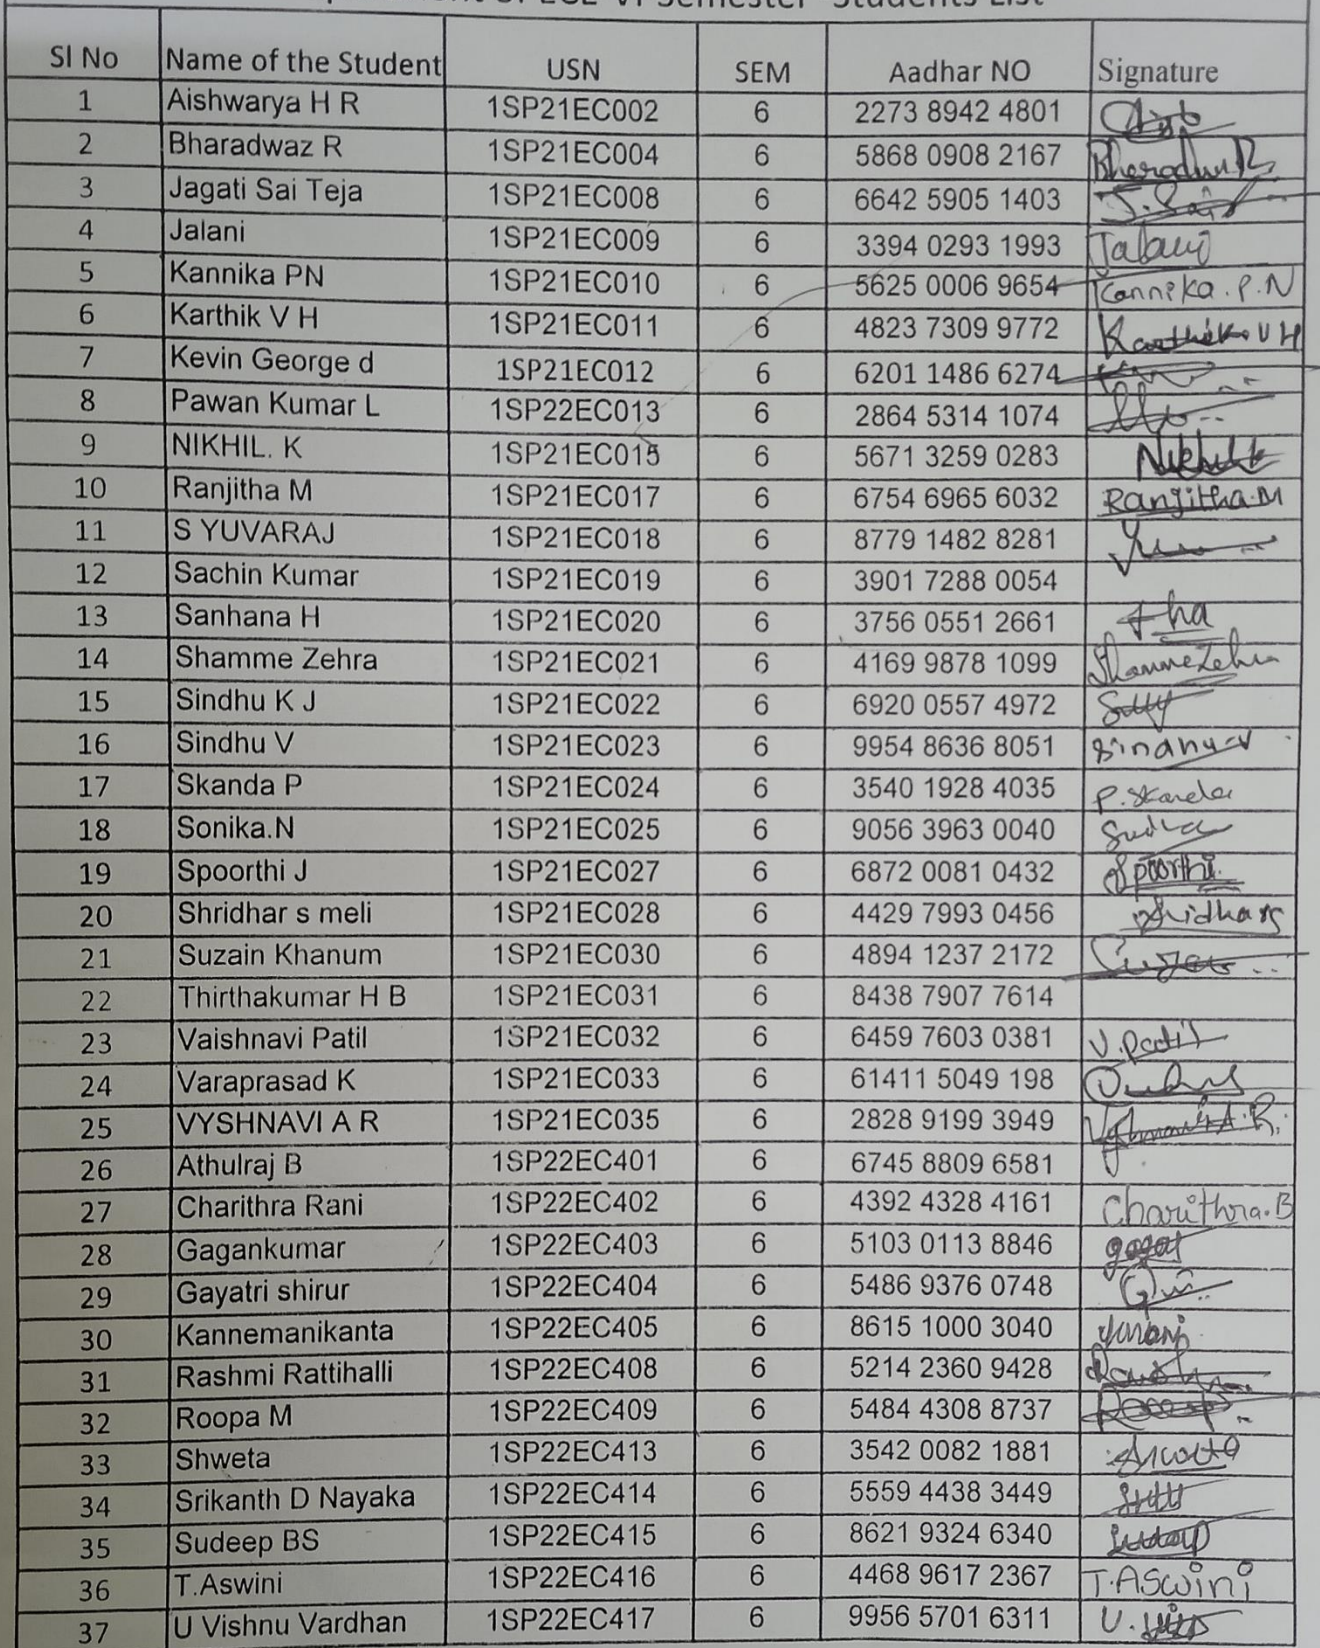 VI Semester Students List
Sl No Name of the Student USN SEM Aadhar NO Signature
1 Aishwarya H R 1SP21EC002 6 2273 8942 4801
2 Bharadwaz R 1SP21EC004 6 5868 0908 2167
3 Jagati Sai Teja 1SP21EC008 6 6642 5905 1403
4 Jalani 1SP21EC009 6 3394 0293 1993 Jalani
5 Kannika PN 1SP21EC010 6 5625 0006 9654 Kannika.P.N
6 Karthik V H 1SP21EC011 6 4823 7309 9772 Karthik.V H
7 Kevin George d 1SP21EC012 6 6201 1486 6274
8 Pawan Kumar L 1SP22EC013 6 2864 5314 1074
9 NIKHIL. K 1SP21EC015 6 5671 3259 0283
10 Ranjitha M 1SP21EC017 6 6754 6965 6032 Ranjitha.M
11 S YUVARAJ 1SP21EC018 6 8779 1482 8281
12 Sachin Kumar 1SP21EC019 6 3901 7288 0054
13 Sanhana H 1SP21EC020 6 3756 0551 2661
14 Shamme Zehra 1SP21EC021 6 4169 9878 1099 Shamme Zehra
15 Sindhu K J 1SP21EC022 6 6920 0557 4972
16 Sindhu V 1SP21EC023 6 9954 8636 8051
17 Skanda P 1SP21EC024 6 3540 1928 4035 P. Skanda
18 Sonika.N 1SP21EC025 6 9056 3963 0040
19 Spoorthi J 1SP21EC027 6 6872 0081 0432 Spoorthi
20 Shridhar s meli 1SP21EC028 6 4429 7993 0456
21 Suzain Khanum 1SP21EC030 6 4894 1237 2172
22 Thirthakumar H B 1SP21EC031 6 8438 7907 7614
23 Vaishnavi Patil 1SP21EC032 6 6459 7603 0381 V.Patil
24 Varaprasad K 1SP21EC033 6 61411 5049 198
25 VYSHNAVI A R 1SP21EC035 6 2828 9199 3949 Vyshnavi A.R.
26 Athulraj B 1SP22EC401 6 6745 8809 6581
27 Charithra Rani 1SP22EC402 6 4392 4328 4161 Charithra.B
28 Gagankumar 1SP22EC403 6 5103 0113 8846
29 Gayatri shirur 1SP22EC404 6 5486 9376 0748
30 Kannemanikanta 1SP22EC405 6 8615 1000 3040
31 Rashmi Rattihalli 1SP22EC408 6 5214 2360 9428
32 Roopa M 1SP22EC409 6 5484 4308 8737
33 Shweta 1SP22EC413 6 3542 0082 1881
34 Srikanth D Nayaka 1SP22EC414 6 5559 4438 3449
35 Sudeep BS 1SP22EC415 6 8621 9324 6340
36 T.Aswini 1SP22EC416 6 4468 9617 2367 T.ASwini
37 U Vishnu Vardhan 1SP22EC417 6 9956 5701 6311